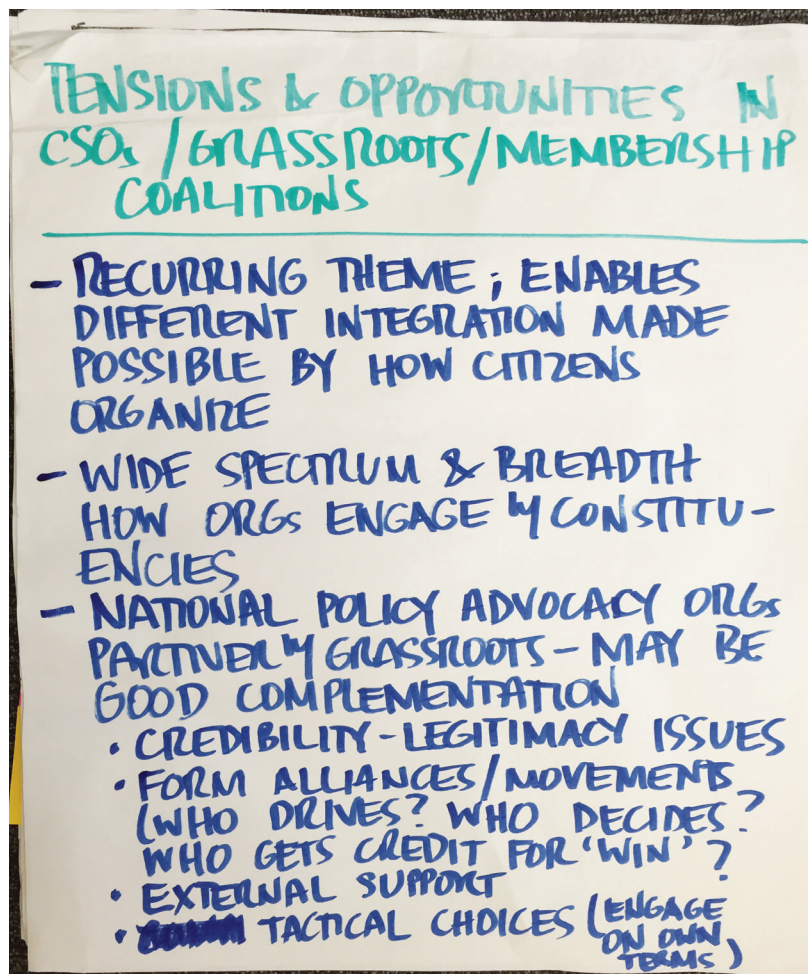 TENSIONS & OPPORTUNITIES IN
CSOs / GRASSROOTS / MEMBERSHIP
COALITIONS
- RECURRING THEME ; ENABLES
DIFFERENT INTEGRATION MADE
POSSIBLE BY HOW CITIZENS
ORGANIZE
- WIDE SPECTRUM & BREADTH
HOW ORGs ENGAGE w/ CONSTITU-
ENCIES
- NATIONAL POLICY ADVOCACY ORGs
PARTNER w/ GRASSROOTS - MAY BE
GOOD COMPLEMENTATION
• CREDIBILITY - LEGITIMACY ISSUES
• FORM ALLIANCES/MOVEMENTS
(WHO DRIVES? WHO DECIDES?
WHO GETS CREDIT FOR 'WIN'?
• EXTERNAL SUPPORT
• TACTICAL CHOICES (ENGAGE
ON OWN
TERMS)